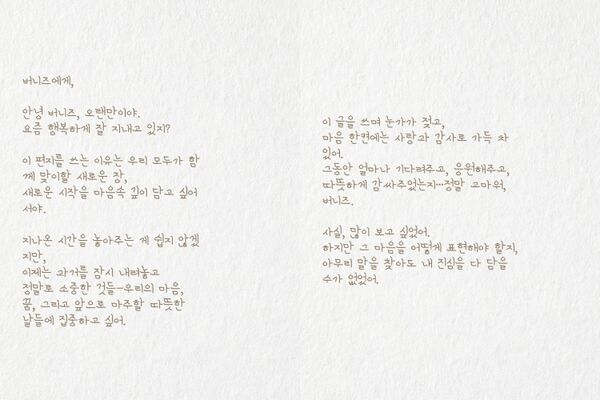 버니즈에게,
안녕 버니즈, 오랜만이야.
요즘 행복하게 잘 지내고 있지?
이 편지를 쓰는 이유는 우리 모두가 함
께 맞이할 새로운 장,
새로운 시작을 마음속 깊이 담고 싶어
서야.
지나온 시간을 놓아주는 게 쉽지 않겠
지만,
이제는 과거를 잠시 내려놓고
정말로 소중한 것들–우리의 마음,
꿈, 그리고 앞으로 마주할 따뜻한
날들에 집중하고 싶어.
이 글을 쓰며 눈가가 젖고,
마음 한편에는 사랑과 감사로 가득 차
있어.
그동안 얼마나 기다려주고, 응원해주고,
따뜻하게 감싸주었는지…정말 고마워,
버니즈.
사실, 많이 보고 싶었어.
하지만 그 마음을 어떻게 표현해야 할지,
아무리 말을 찾아도 내 진심을 다 담을
수가 없었어.